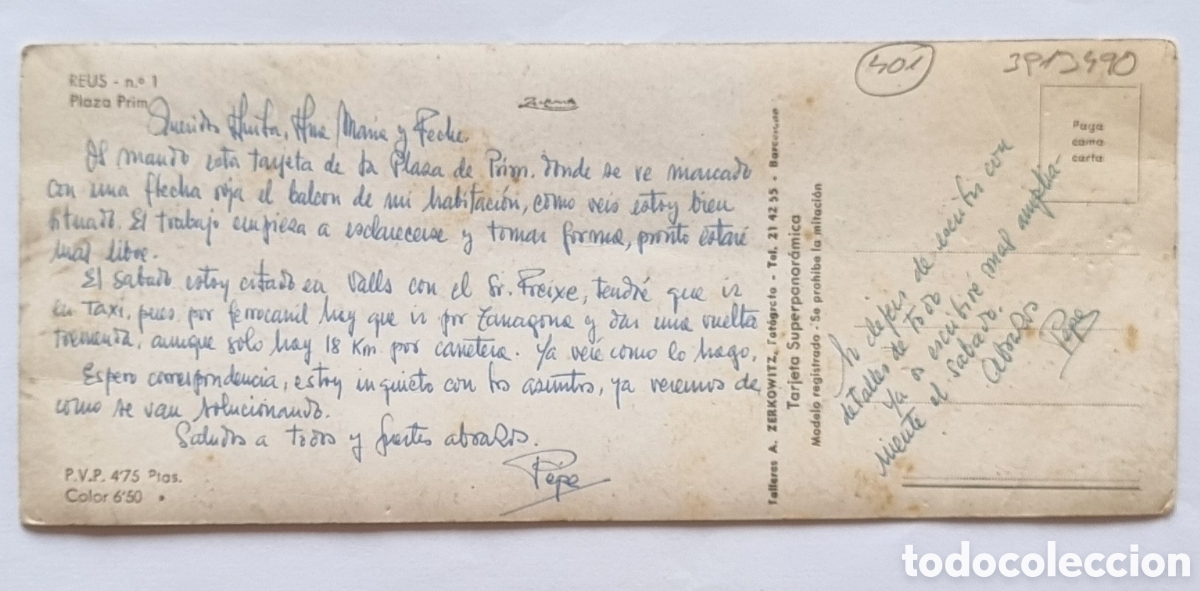 REUS - n.º 1
Plaza Prim
Queridos Ana María y
Os mando esta tarjeta de la Plaza de Prim. donde se ve marcado
con una flecha roja el balcon de mi habitación, como veis estoy bien
situado. El trabajo empieza a esclarecerse y tomar forma, pronto estaré
mas libre.
El sabado estoy citado en Valls con el Sr. Freixe, tendré que ir
en Taxi, pues por ferrocarril hay que ir por Tarragona y dar una vuelta
tremenda, aunque solo hay 18 Km por carretera. Ya veré como lo hago.
Espero correspondencia, estoy inquieto con los asuntos, ya veremos de,
como se van solucionando.
Saludos a todos y fuertes abrazos.
Pepe
P.V.P. 4'75 Ptas.
Color 6'50 »
Talleres A. ZERKOWITZ, Fotógrafo - Tel. 21 42 55 - Barcelona
Tarjeta Superpanorámica
Modelo registrado - Se prohibe la imitación
401
3913490
Paga
como
carta
No dejeis de escribir con
detalles de todo
Ya os escribiré mas amplia-
mente el Sabado.
Abrazos
Pepe
todocoleccion